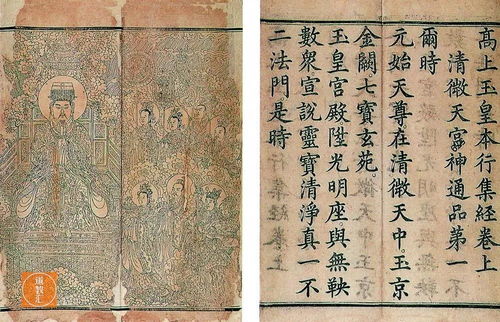 高上玉皇本行集經卷上
清微天宮神通品第一
爾時
元始天尊在清微天中玉京
金闕七寶玄苑
玉皇宮殿陞光明座與無鞅
數衆宣說靈寶清淨真一不
二法門是時